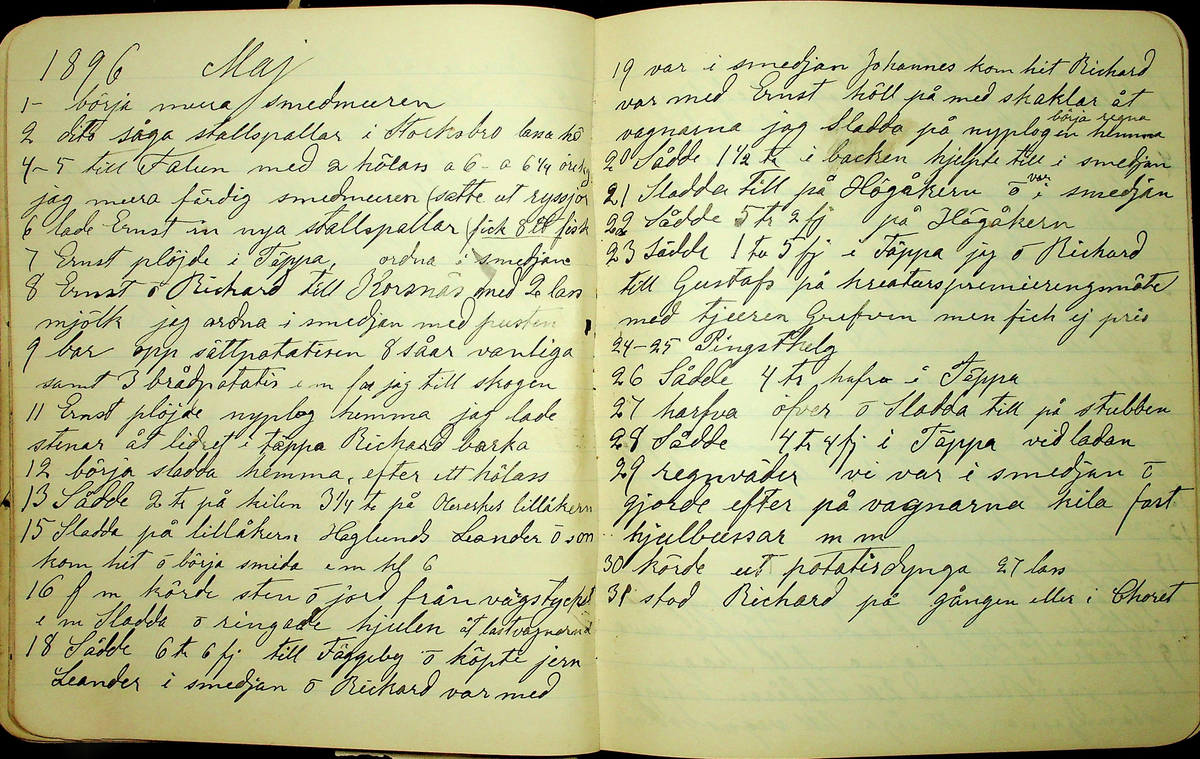 1896 Maj
1- börja mura smedmuren
2 dito såga stallspallar i Stocksbro lassa hö
4-5 till Falun med 2 hölass a 6- a 6¼ öre
jag mura färdig smedmuren (satte ut ryssjor
6 lade Ernst in nya stallspallar (fick 8 ℔ fisk
7 Ernst plöjde i Täppa, ordna i smedjan
8 Ernst o Richard till Korsnäs med 2 lass
mjölk jag ordna i smedjan med pusten
9 bar opp sättpotateren 8 såar vanliga
samt 3 brådpotatis e m for jag till skogen
11 Ernst plöjde nyplog hemma jag lade
stenar åt lidret i täppa Richard barka
12 börja sladda hemma, efter ett hölass
13 Sådde 2 tr på kilen 3¼ tr på lillåkern
15 Sladda på lillåkern Haglunds Leander o son
kom hit o börja smida e m kl 6
16 f m körde sten o jord från vägstycket
e m Sladda o ringade hjulen åt lastvagnarna
18 Sådde 6 tr 6 fj till Fäggeby o köpte jern
Leander i smedjan o Rickard var med
19 var i smedjan Johannes kom hit Richard
var med Ernst höll på med skaklar åt
vagnarna jag Sladda på nyplogen hemma börja regna
20 Sådde 1½ tr i backen hjelpte till i smedjan
21 Sladda till på Högåkern o var i smedjan
22 Sådde 5 tr 2 fj på Högåkern
23 Sådde 1 tr 5 fj i Täppa jag o Richard
till Gustafs på kreaturspremieringsmöte
med tjuren Grefven men fick ej pris
24-25 Pingsthelg
26 Sådde 4 tr hafra i Täppa
27 harfva öfver o Sladda till på stubben
28 Sådde 4 tr 4 fj i Täppa vid ladan
29 regnväder vi var i smedjan o
gjorde efter på vagnarna kila fast
hjulbussar m m
30 körde ut potatisdynga 27 lass
31 stod Richard på gången eller i Choret